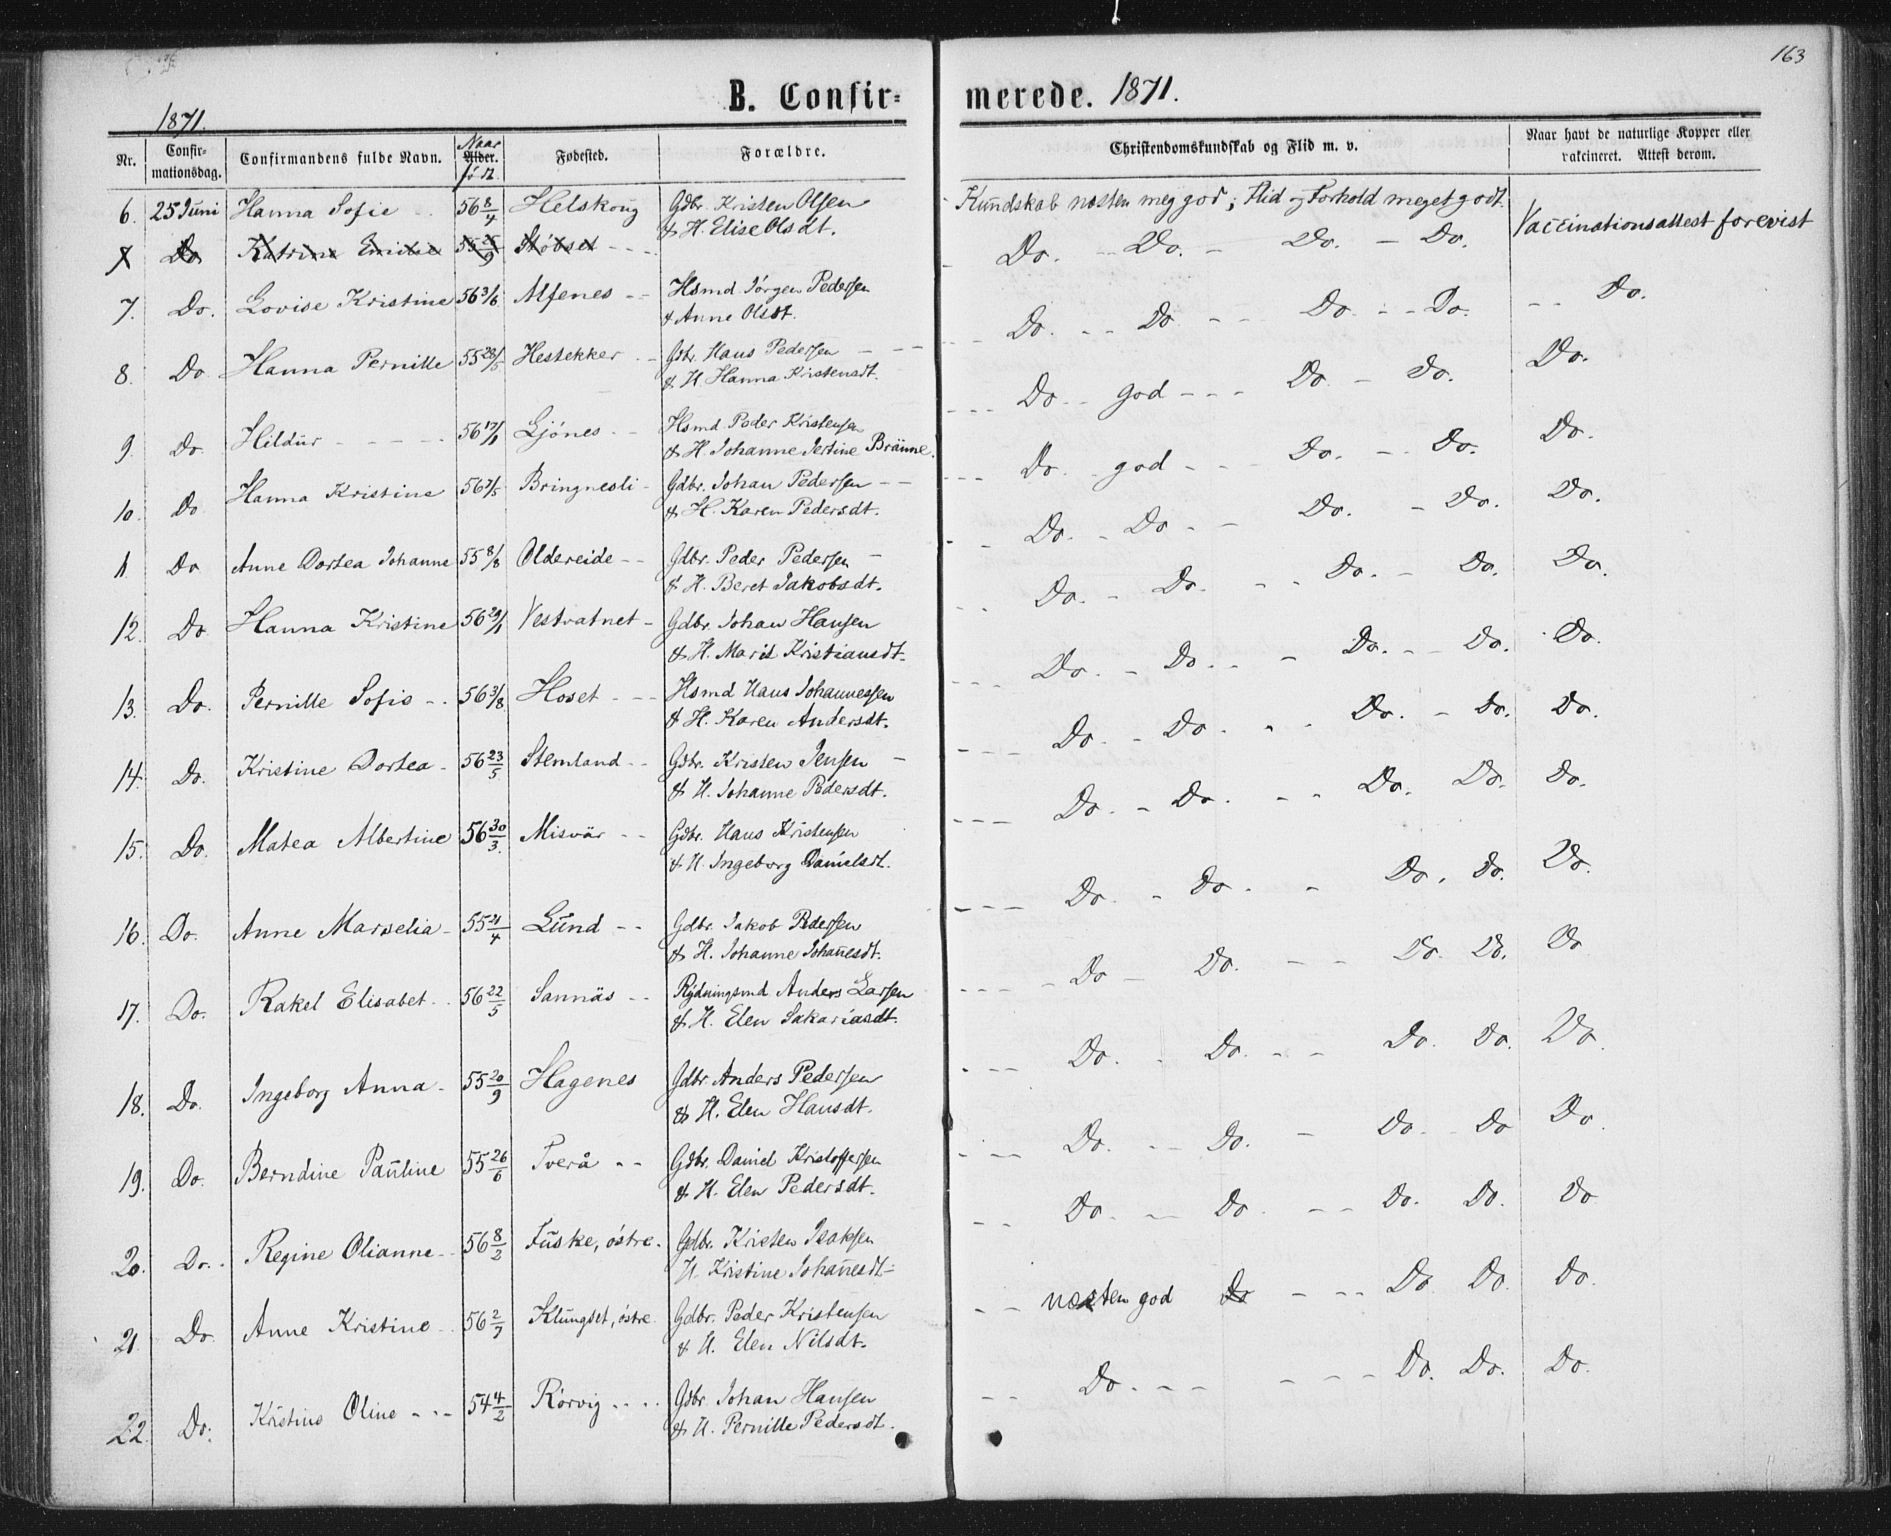 163
B. Confir=
merede. 1871.
1871.
Nr. Confir-mationsdag. Confirmandens fulde Navn. Alder. Naar født Fødested. Forældre. Christendomskundskab og Flid m. v. Naar havt de naturlige Kopper eller vakcineret. Attest derom.
6. 25 Juni Hanna Sofie 56 8/4 Helskoug Gdbr. Kristen Olsen Kundskab næsten meg god; Flid og Forhold meget godt. Vaccinationsattest forevist
& H. Elise Olsdt.
7 Do Katrine Emilie 55 25/9 Støbset Do. Do. Do. Do.
7. Do. Lovise Kristine 56 3/6 Alfenes Hsmd Jörgen Pedersen Do. Do Do Do. Do.
& Anne Olsdt.
8. Do Hanna Pernille 55 28/5 Hestekker Gdbr. Hans Pedersen Do god Do Do. Do.
& H. Hanna Kristensdt.
9. Do. Hildur 56 17/1 Ljönes Hsmd. Peder Kristensen Do. god Do. Do. Do.
& H. Johanne Jertine Bräune.
10. Do Hanna Kristine 56 7/5 Bringnesli Gdbr. Johan Pedersen Do. Do Do. Do. Do.
& H. Karen Pedersdt.
11. Do Anne Dortea Johanne 55 8/8 Oldereide Gdbr. Peder Pedersen Do. Do. Do. Do. Do.
& H. Beret Jakobsdt.
12. Do Hanna Kristine 56 29/1 Vestvatnet Gdbr. Johan Hansen Do. Do. Do. Do. Do.
& H. Marit Kristiansdt.
13. Do. Pernille Sofie 56 3/8 Hoset Hsmd Hans Johannessen Do. Do. Do. Do. Do.
& H. Karen Andersdt.
14. Do. Kristine Dortea 56 23/5 Stemland Gdbr. Kristen Jensen Do. Do. Do. Do. Do.
& H. Johanne Pedersdt.
15. Do. Matea Albertine 56 30/3. Misvär Gdbr. Hans Kristensen Do. Do. Do. Do. Do.
& H. Ingeborg Danielsdt.
16. Do. Anne Marselia 55 21/4 Lund Gdbr. Jakob Pedersen Do Do. Do. Do. Do
& H. Johanne Johan̄esdt.
17. Do. Rakel Elisabet 56 22/5 Sannäs Rydningsmd Anders Larsen Do. Do. Do. Do. Do
& H. Elen Sakariasdt.
18. Do. Ingeborg Anna 55 20/9 Hagenes Gdbr. Anders Pedersen Do. Do. Do. Do Do
& H. Elen Hansdt.
19. Do. Berndine Pauline 55 26/6 Tverå Gdbr. Daniel Kristoffersen Do. Do. Do. Do. Do
& H. Elen Pedersdt.
20. Do. Regine Olianne 56 8/2 Fuske, östre. Gdbr. Kristen Isaksen næsten god Do Do Do. Do.
H. Kristine Johan̄esdt
21. Do Anne Kristine 56 2/7 Klungset, östre Gdbr. Peder Kristensen Do. Do. Do. Do.
& H. Elen Nilsdt.
22. Do. Kristine Oline 54 4/2 Rörvig Gdbr. Johan Hansen
& H. Pernille Pedersdt.